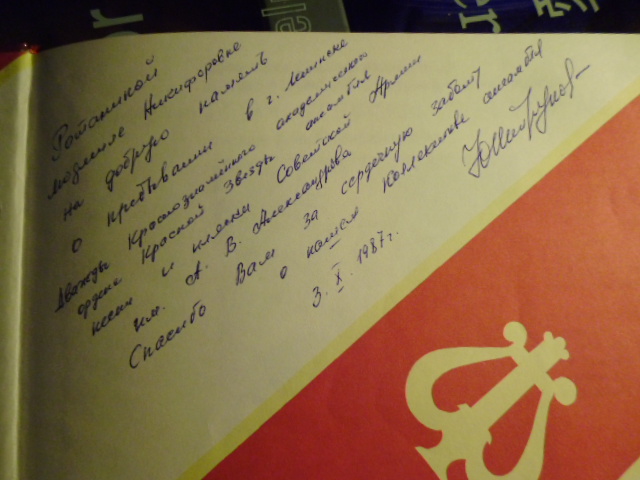 Ротаниной
Людмиле Никифоровне
на добрую память
о пребывании в г. Ленинске
Дважды Краснознамённого академического
ордена Красной Звезды ансамбля
песни и пляски Советской Армии
им. А. В. Александрова
Спасибо Вам за сердечную заботу
о нашем коллективе ансамбля
3. X. 1987 г.